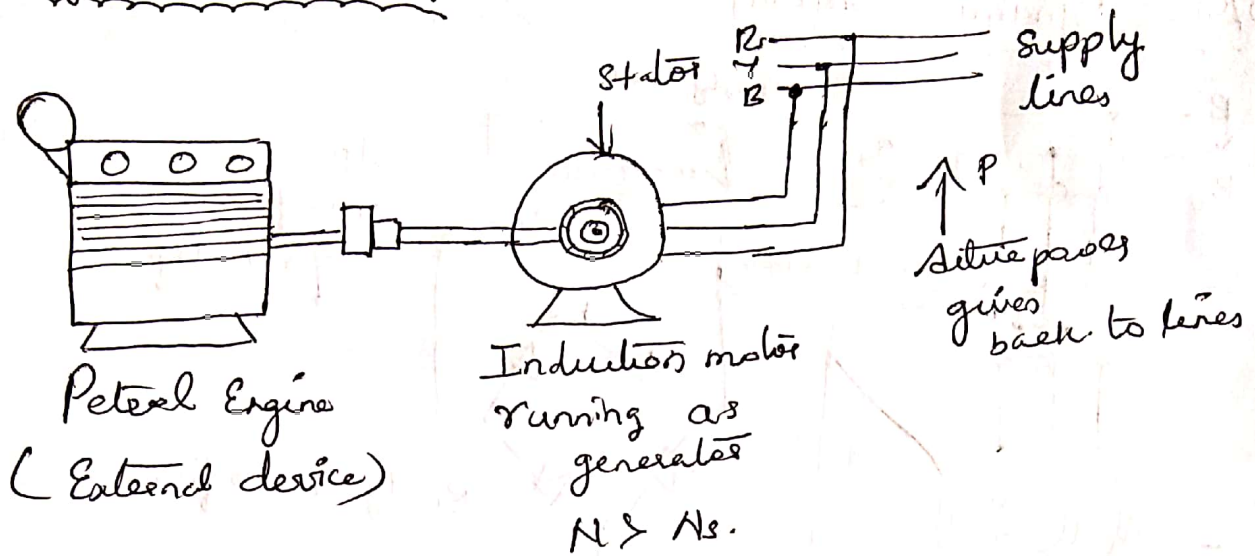 R
Y
B
Supply
lines
Stator
P
Active power
gives
back to lines
Petrol Engine
(External device)
Induction motor
running as
generator
N > Ns.